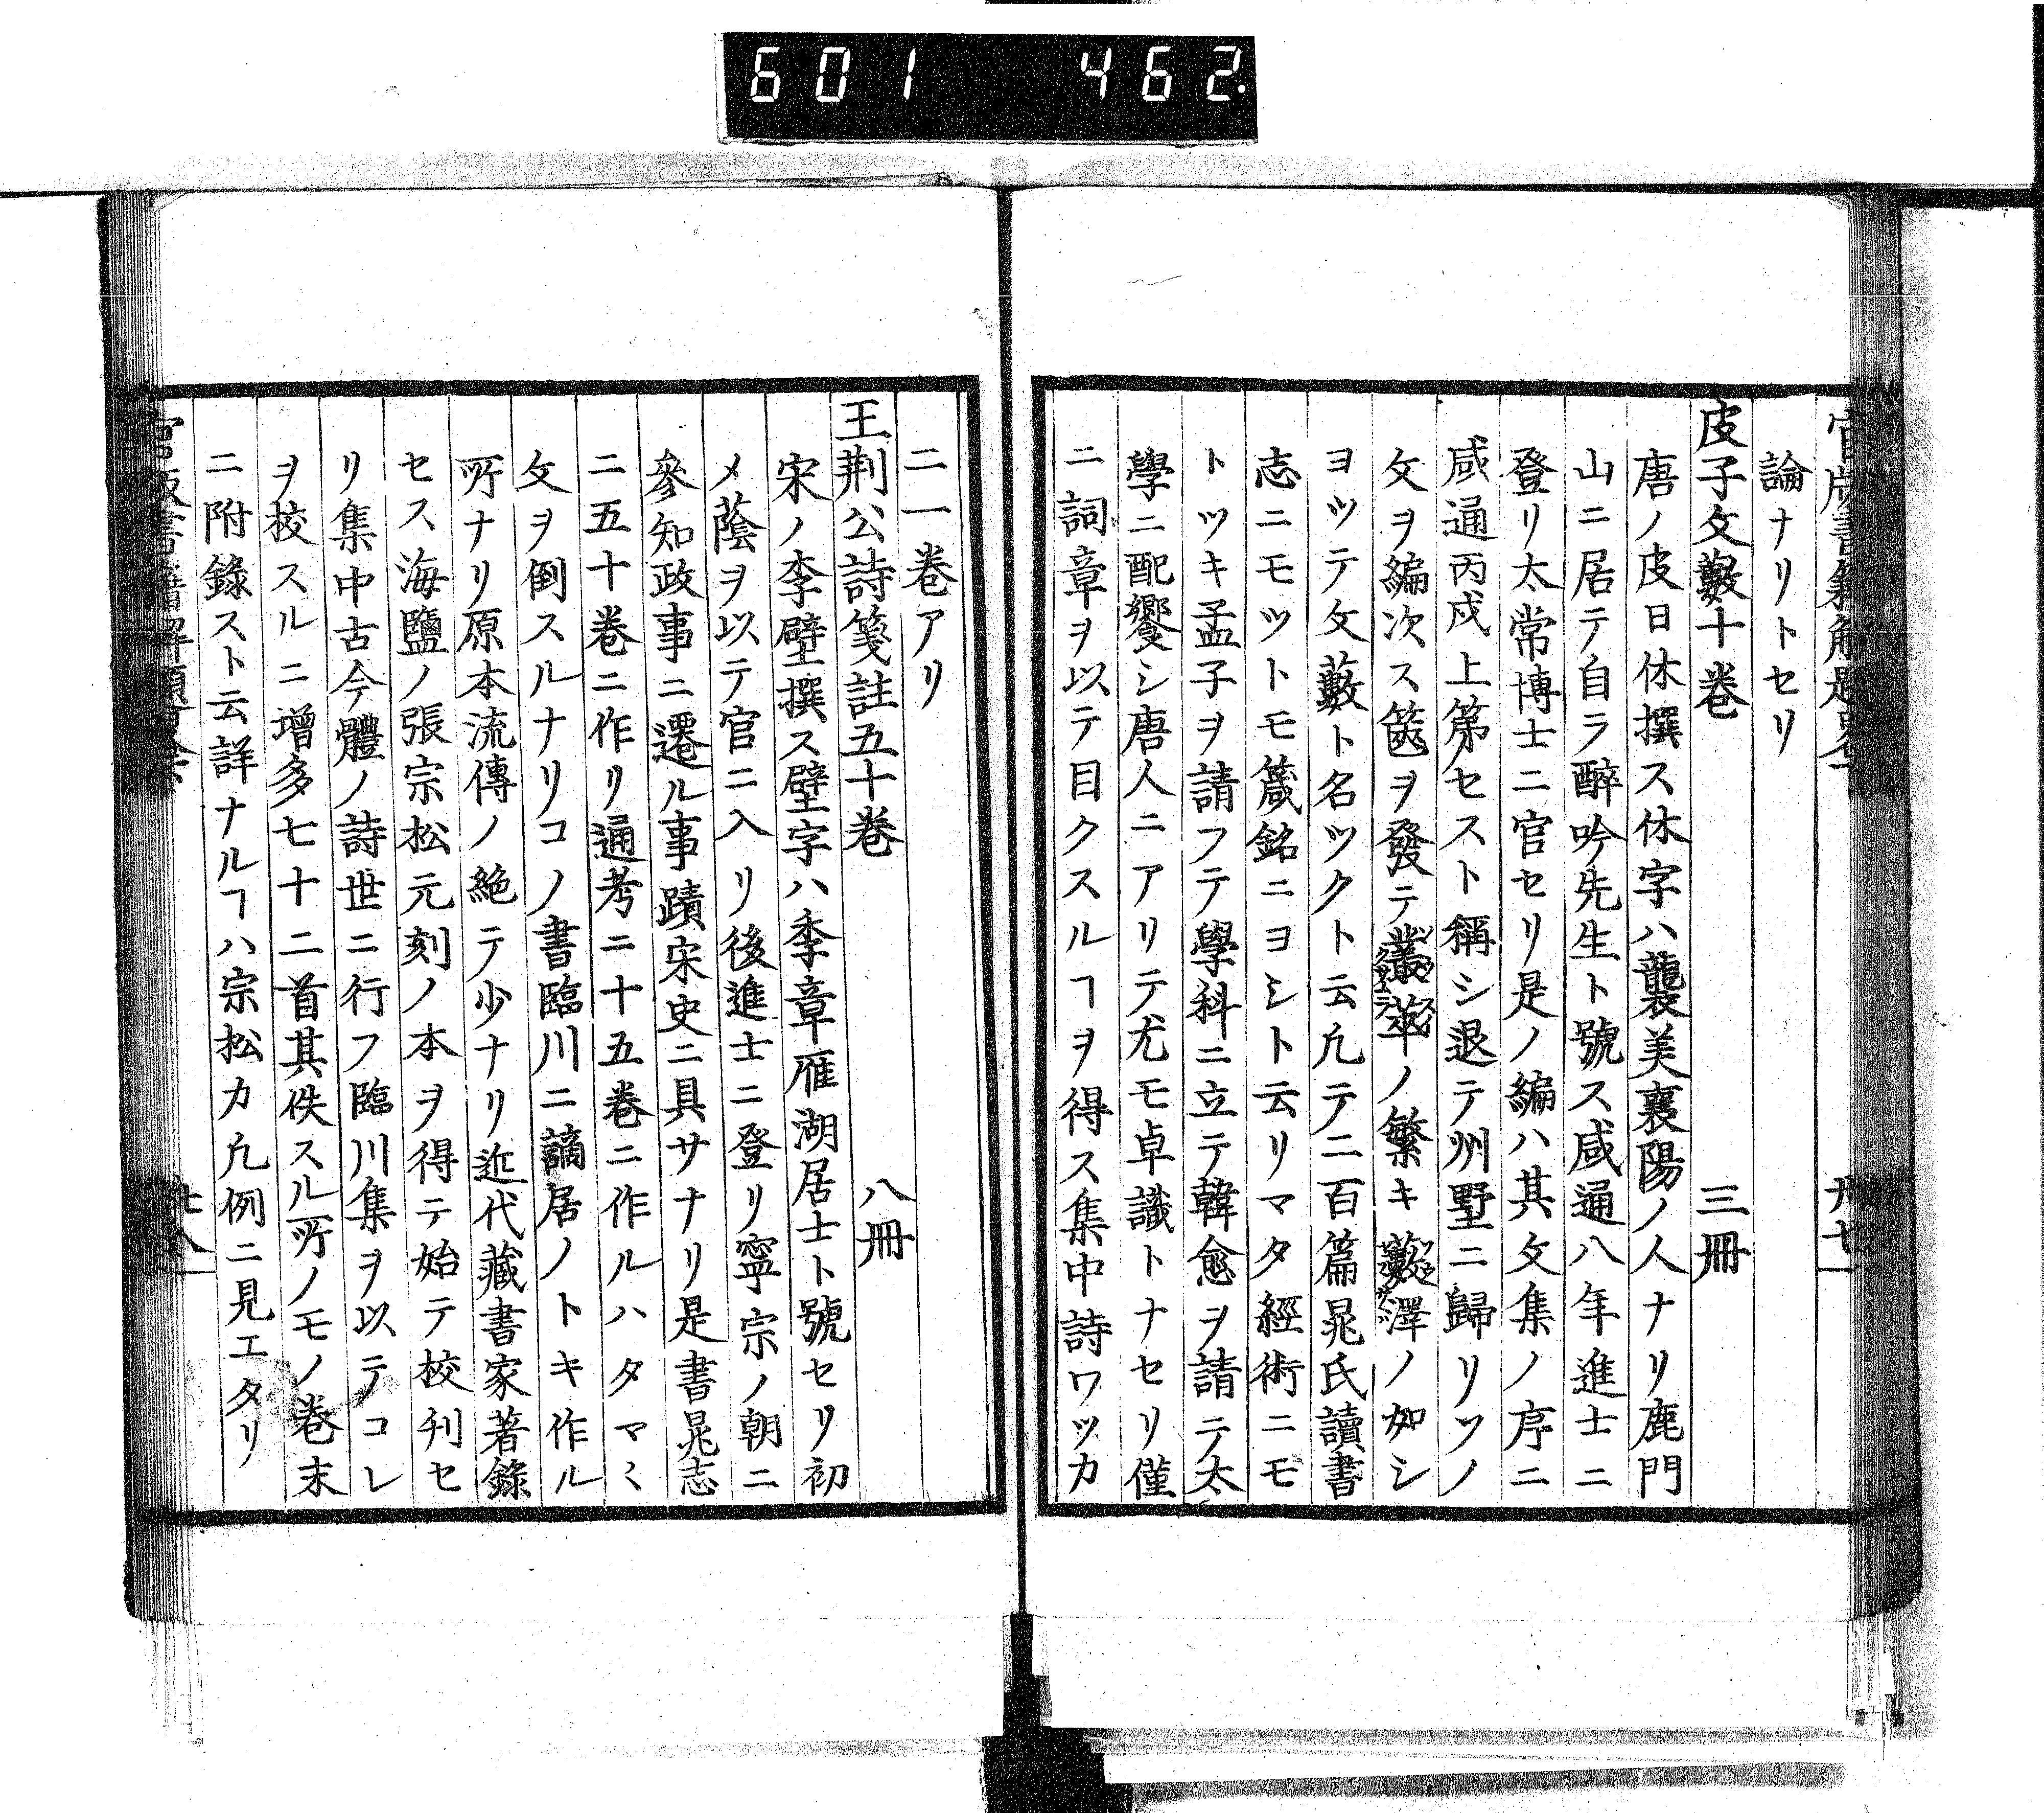 601 462
論ナリトセリ
皮子文藪十巻 三冊
唐ノ皮日休撰ス休字ハ襲美襄陽ノ人ナリ鹿門
山ニ居テ自ラ醉吟先生ト號ス咸通八年進士ニ
登リ太常博士ニ官セリ是ノ編ハ其文集ノ序ニ
咸通丙戌上第セスト稱シ退テ州墅ニ歸リソノ
文ヲ編次ス篋ヲ發テ叢萃ノ繁キ藪澤ノ如シ
ヨツテ文藪ト名ツクト云凢テ二百篇晁氏讀書
志ニモツトモ箴銘ニヨシト云リマタ經術ニモ
トツキ孟子ヲ請フテ學科ニ立テ韓愈ヲ請テ太
學ニ配饗シ唐人ニアリテ尤モ卓識トナセリ僅
ニ詞章ヲ以テ目クスルヿヲ得ス集中詩ワツカ
二一巻アリ
王荆公詩箋註五十巻 八冊
宋ノ李壁撰ス壁字ハ季章雁湖居士ト號セリ初
メ蔭ヲ以テ官ニ入リ後進士ニ登リ寧宗ノ朝ニ
參知政事ニ遷ル事蹟宋史ニ具サナリ是書晁志
ニ五十巻ニ作リ通考ニ十五巻ニ作ルハタマミ
文ヲ倒スルナリコノ書臨川ニ謫居ノトキ作ル
所ナリ原本流傳ノ絶テ少ナリ近代藏書家著錄
セス海鹽ノ張宗松元刻ノ本ヲ得テ始テ校刋セ
リ集中古今體ノ詩世ニ行フ臨川集ヲ以テコレ
ヲ校スルニ增多七十二首其佚スル所ノモノ巻末
ニ附錄スト云詳ナルヿハ宗松カ凢例ニ見エタリ